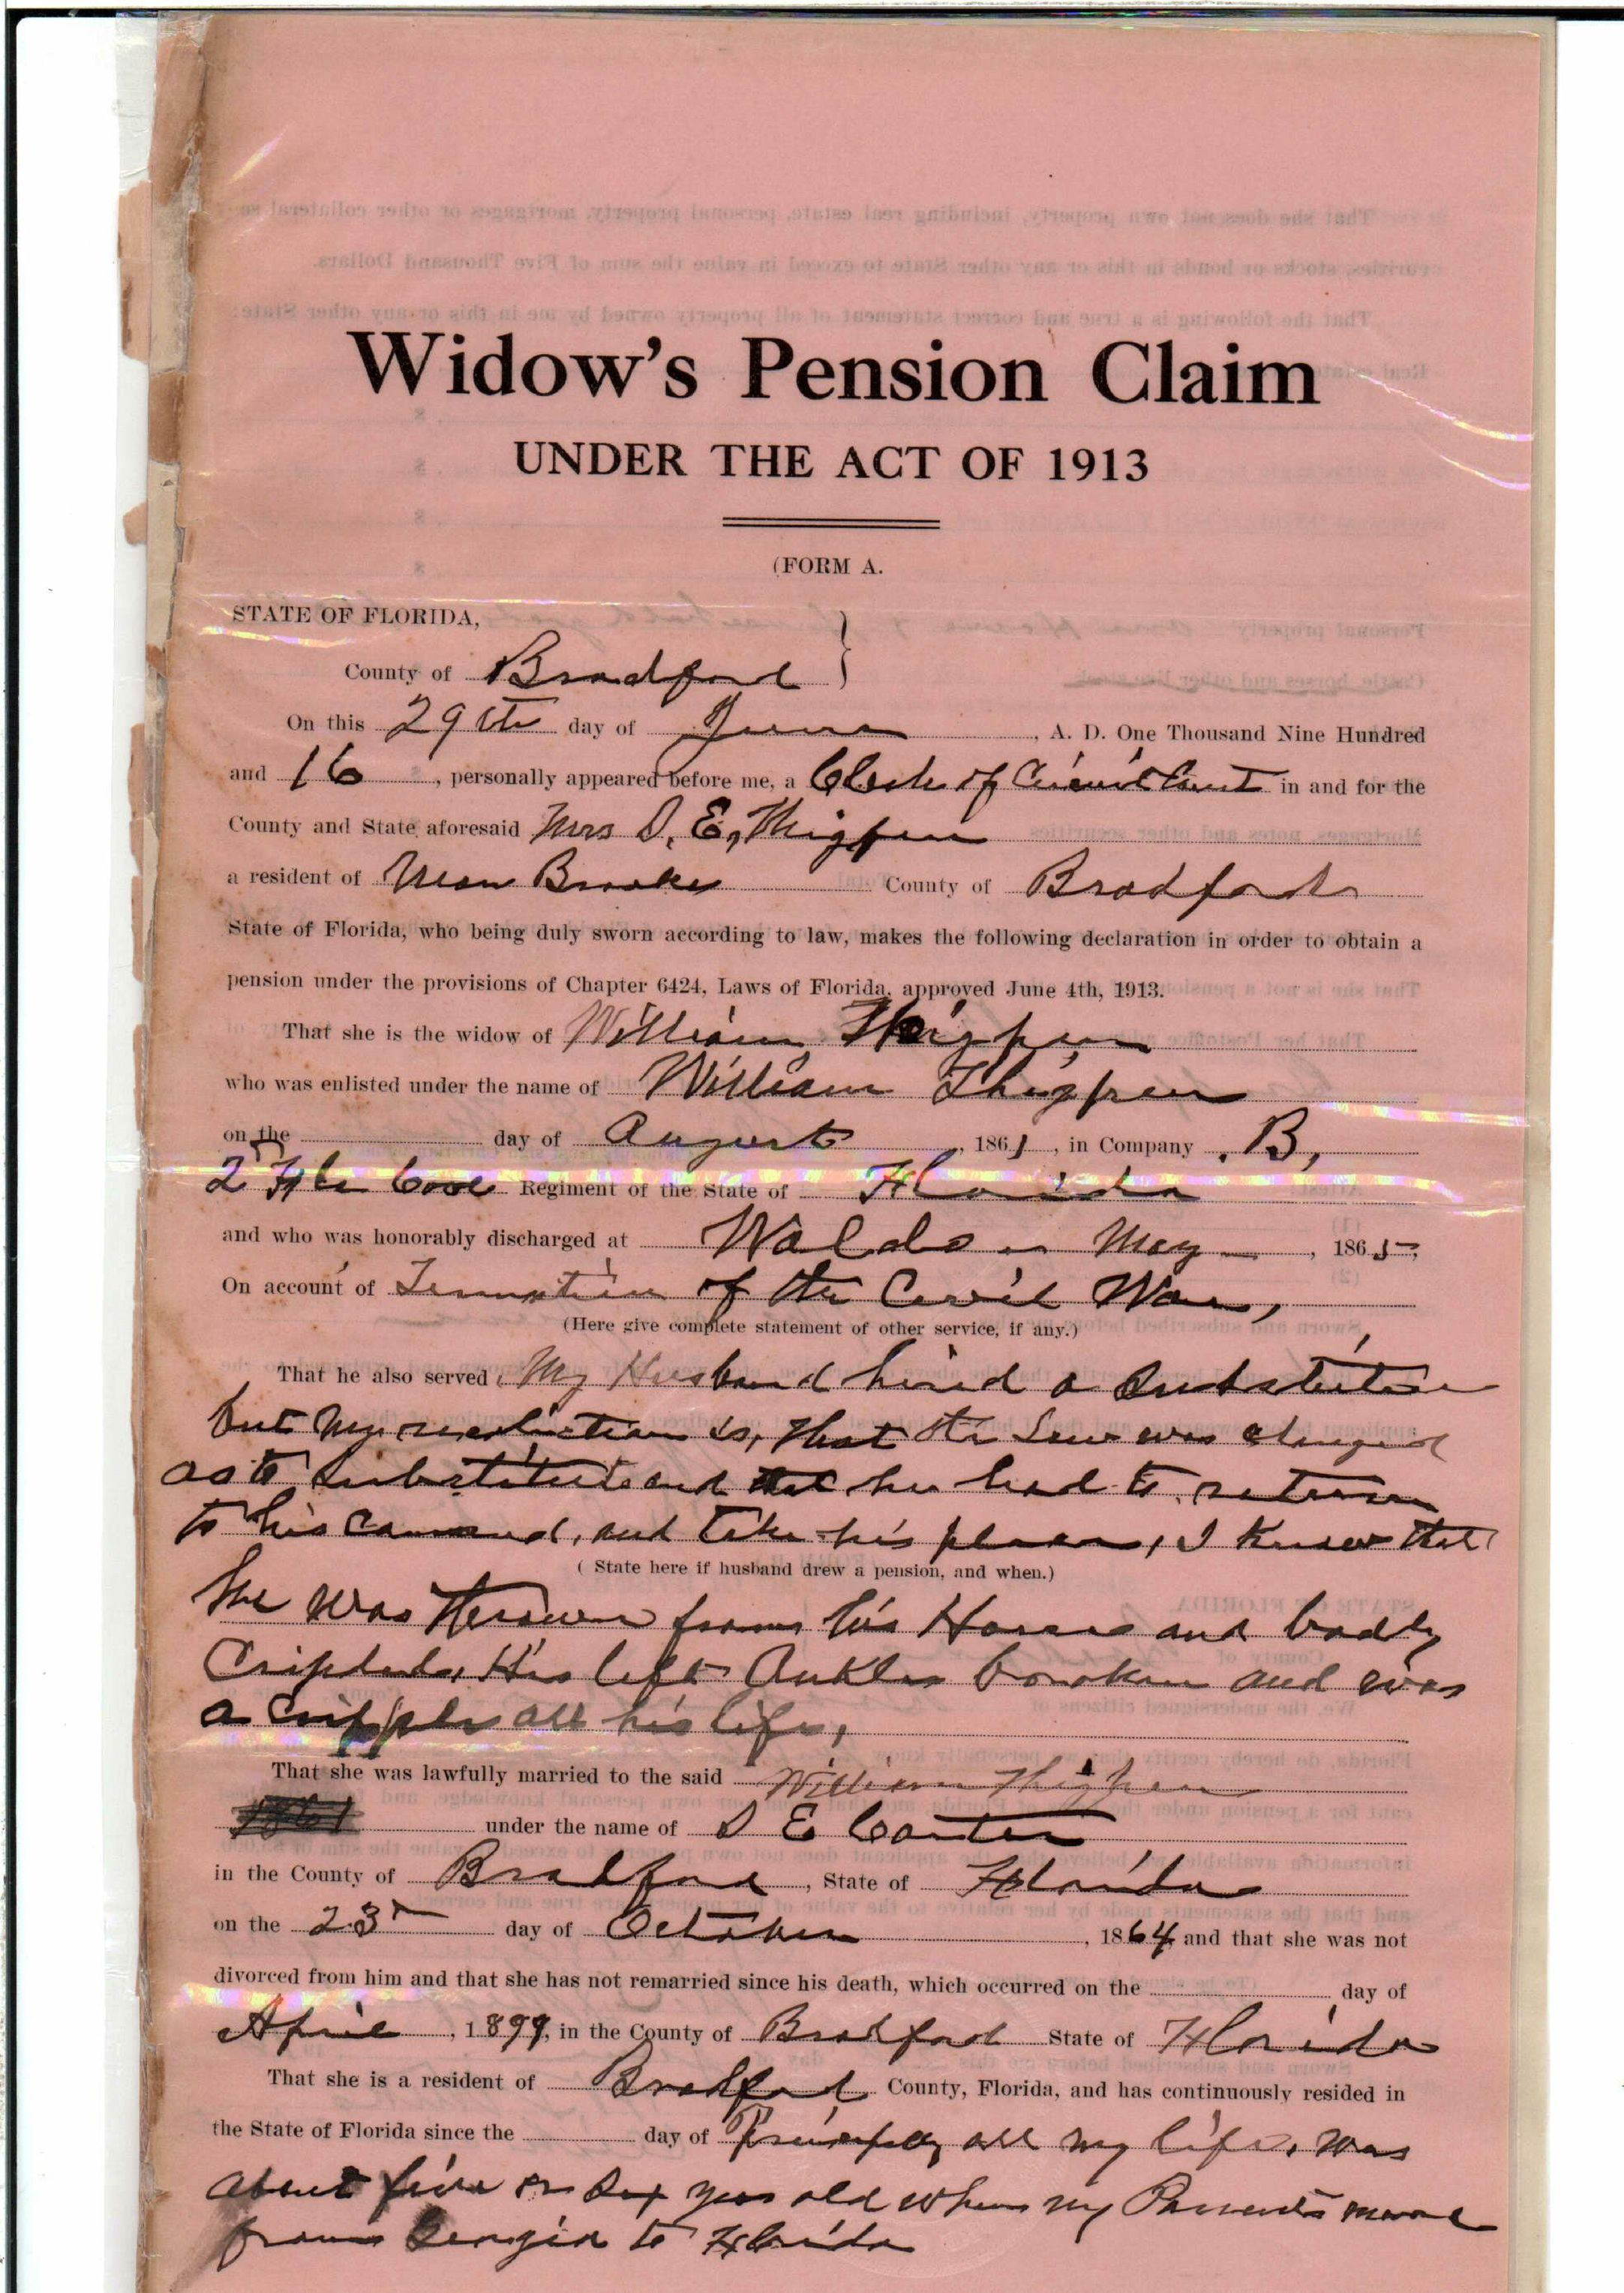 Widow's Pension Claim
UNDER THE ACT OF 1913
(FORM A.
STATE OF FLORIDA,
County of Bradford }
On this 29th day of June , A. D. One Thousand Nine Hundred
and 16 , personally appeared before me, a Clerk of Circuit Court in and for the
County and State aforesaid Mrs S. E, Thigpen
a resident of Near Brooker County of Bradford
State of Florida, who being duly sworn according to law, makes the following declaration in order to obtain a
pension under the provisions of Chapter 6424, Laws of Florida, approved June 4th, 1913.
That she is the widow of William Thigpen
who was enlisted under the name of William Thigpen
on the day of August , 1861 , in Company B,
2 Fla Cav Regiment of the State of Florida
and who was honorably discharged at Waldo - May , 1865,
On account of Termination of the Civil War,
(Here give complete statement of other service, if any.)
That he also served My Husband hired a Substitute
but my recolection is, that the Law was changed
as to Substitute and that he had to return
to his command, and take his place, I know that
( State here if husband drew a pension, and when.)
he was thrown from his Horse and badly
Cripled, His left Ankle broken and was
a cripple all his life,
That she was lawfully married to the said William Thigpen
under the name of S E Carter
in the County of Bradford , State of Florida
on the 23r day of October , 1864 and that she was not
divorced from him and that she has not remarried since his death, which occurred on the day of
April , 1899, in the County of Bradford State of Florida
That she is a resident of Bradford County, Florida, and has continuously resided in
the State of Florida since the day of all my life, was
about five or Six years old when my Parents moved
from Georgia to Florida